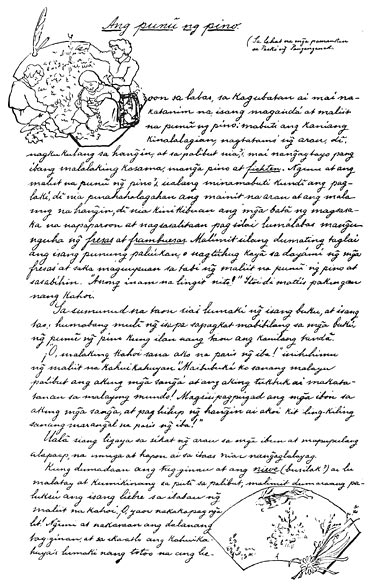 Ang punò ng pino.
(Sa lahat na mga pamankin
sa Paskó ng Panganganak.
Doon sa labas, sa kagubatan ai mai na-
katanim na isang magandá at maliit
na punò ng pino; mabuti ang kaniang
kinalalagian, nagtatamó ng arau, di
nagkukulang sa hangin, at sa palibut niá, mai nangagtayo pang
ibang malalaking kasama, mangá pino at fichten. Ngunì at ang
maliit na punò ng pino'i, ualang minamabuti kundî ang pag-
lakí, di niá pinahahalagahan ang mainit na arau at ang mala-
mig na hangin, di niá kinikibuan ang mga batá ng magsasa-
ka na napaparoon at nagsasalitaan pag silai lumálabas mangu-
nguha ng fresas at frambuesas. Malimit silang dumating taglai
ang isang punung palaiukan, o nagtuhug kayá sa dayami ng mga
fresas at saka maguupuan sa tabi ng maliit na punò ng pino at
sasabihin: "Anong inam na lingit nitó!" Itoi di matiis pakingan
nang kahoi.
Sa sumunud na taon siai lumakí ng isang buku, at isang
taó, humabang mulî ng isa pa sapagkat mabibilang sa mga bukú
ng punò ng pino kung ilan nang taon ang kanilang tandâ.
"O, malaking kahoi sana akó na paris ng ibá! inihihimu
ng maliit na kahuikahuyan: "Maibubuká ko sanang maluag
palibut ang aking mga sangá at ang aking tuktuk ai makata-
tanau sa malayong mundo! Magsisipagpugad ang mga ibon sa
aking mga sangá, at pag hihip ng hangin ai akoi kit-ling-kiling
sanang marangal na paris ng ibá!"
Ualâ siang ligaya sa sikat ng arau sa mga ibon at mapupulang
alapaap, na umaga at hapon ai sa itaas niai nangaglalayag.
Kung dumadaan ang tig-ginau at ang nieve (busilak?) ai la
malatag at kumikinang sa putî sa palibut, malimit dumarang pa-
luksu ang isang liebre sa ibabau ng
maliit na kahoi, O, yaoi nakakapag nga-
lit! Ngunì at nakaraan ang dalauang
tag ginau, at sa ikatló ang kahuika-
huyai lumakí nang totoo na ang lie-